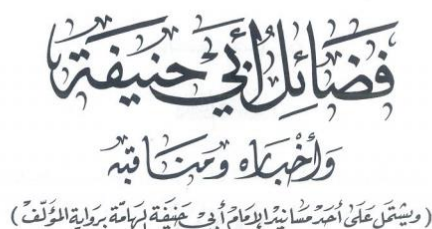 فَضَائِلُ أَبِي حَنِيفَة
وَأَخْبَارُهُ وَمَنَاقِبُهُ
(وَيَشْتَمِلُ عَلَى أَحَدِ مَسَانِيدِ الإِمَامِ أَبِي حَنِيفَةَ الهَامَّةِ بِرِوَايَةِ المُؤَلِّف)